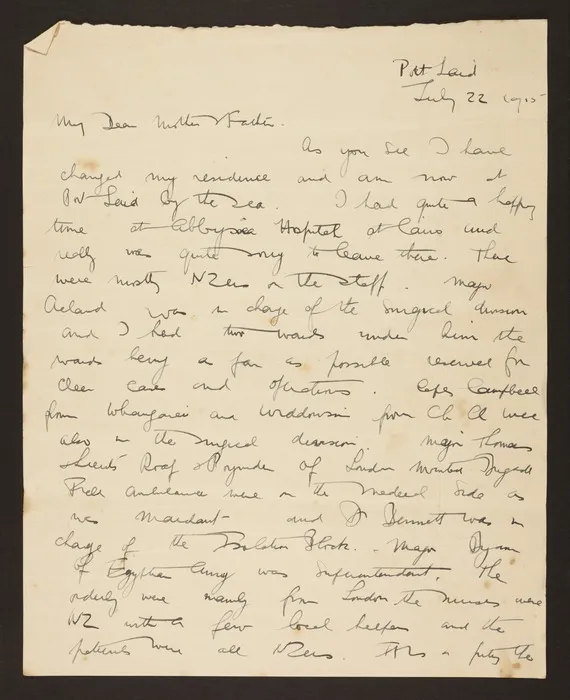 Port Said
July 22 1915
My Dear Mother & Father.
As you see I have
changed my residence and am now at
Port Said by the sea. I had quite a happy
time at Abbysia Hospital at Cairo and
really was quite sorry to leave there. There
were mostly NZers on the staff. Major
Acland was in charge of the surgical division
and I had two wards under him the
wards being as far as possible reserved for
clean cases and operations. Capts Campbell
from Whangarei and Widdowson from Ch Ch were
also in the surgical division. Major Thomas
Lieuts Roaf & Poynder of London Mounted Brigade
Field Ambulance were on the Medical Side as
was Marchant and Dr Bennett was in
charge of the Isolation Block. Major
of Egyptian Army was Superintendent. The
orderly were mainly from London the nurses were
NZ with a few local helpers and the
patients were all NZers. It is a pity the